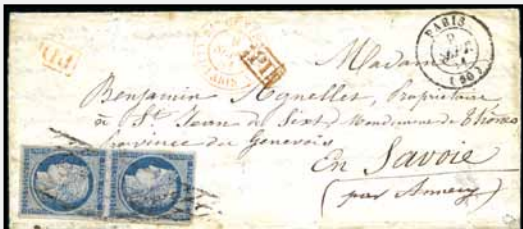 PARIS
(60)
P.P.
P.P.
PARIS
Madame
Benjamin Agnellet, Propriétaire
à St Jean de Sixt, Mandement de Thônes
Province du Genevois
En Savoie
(par Annecy)